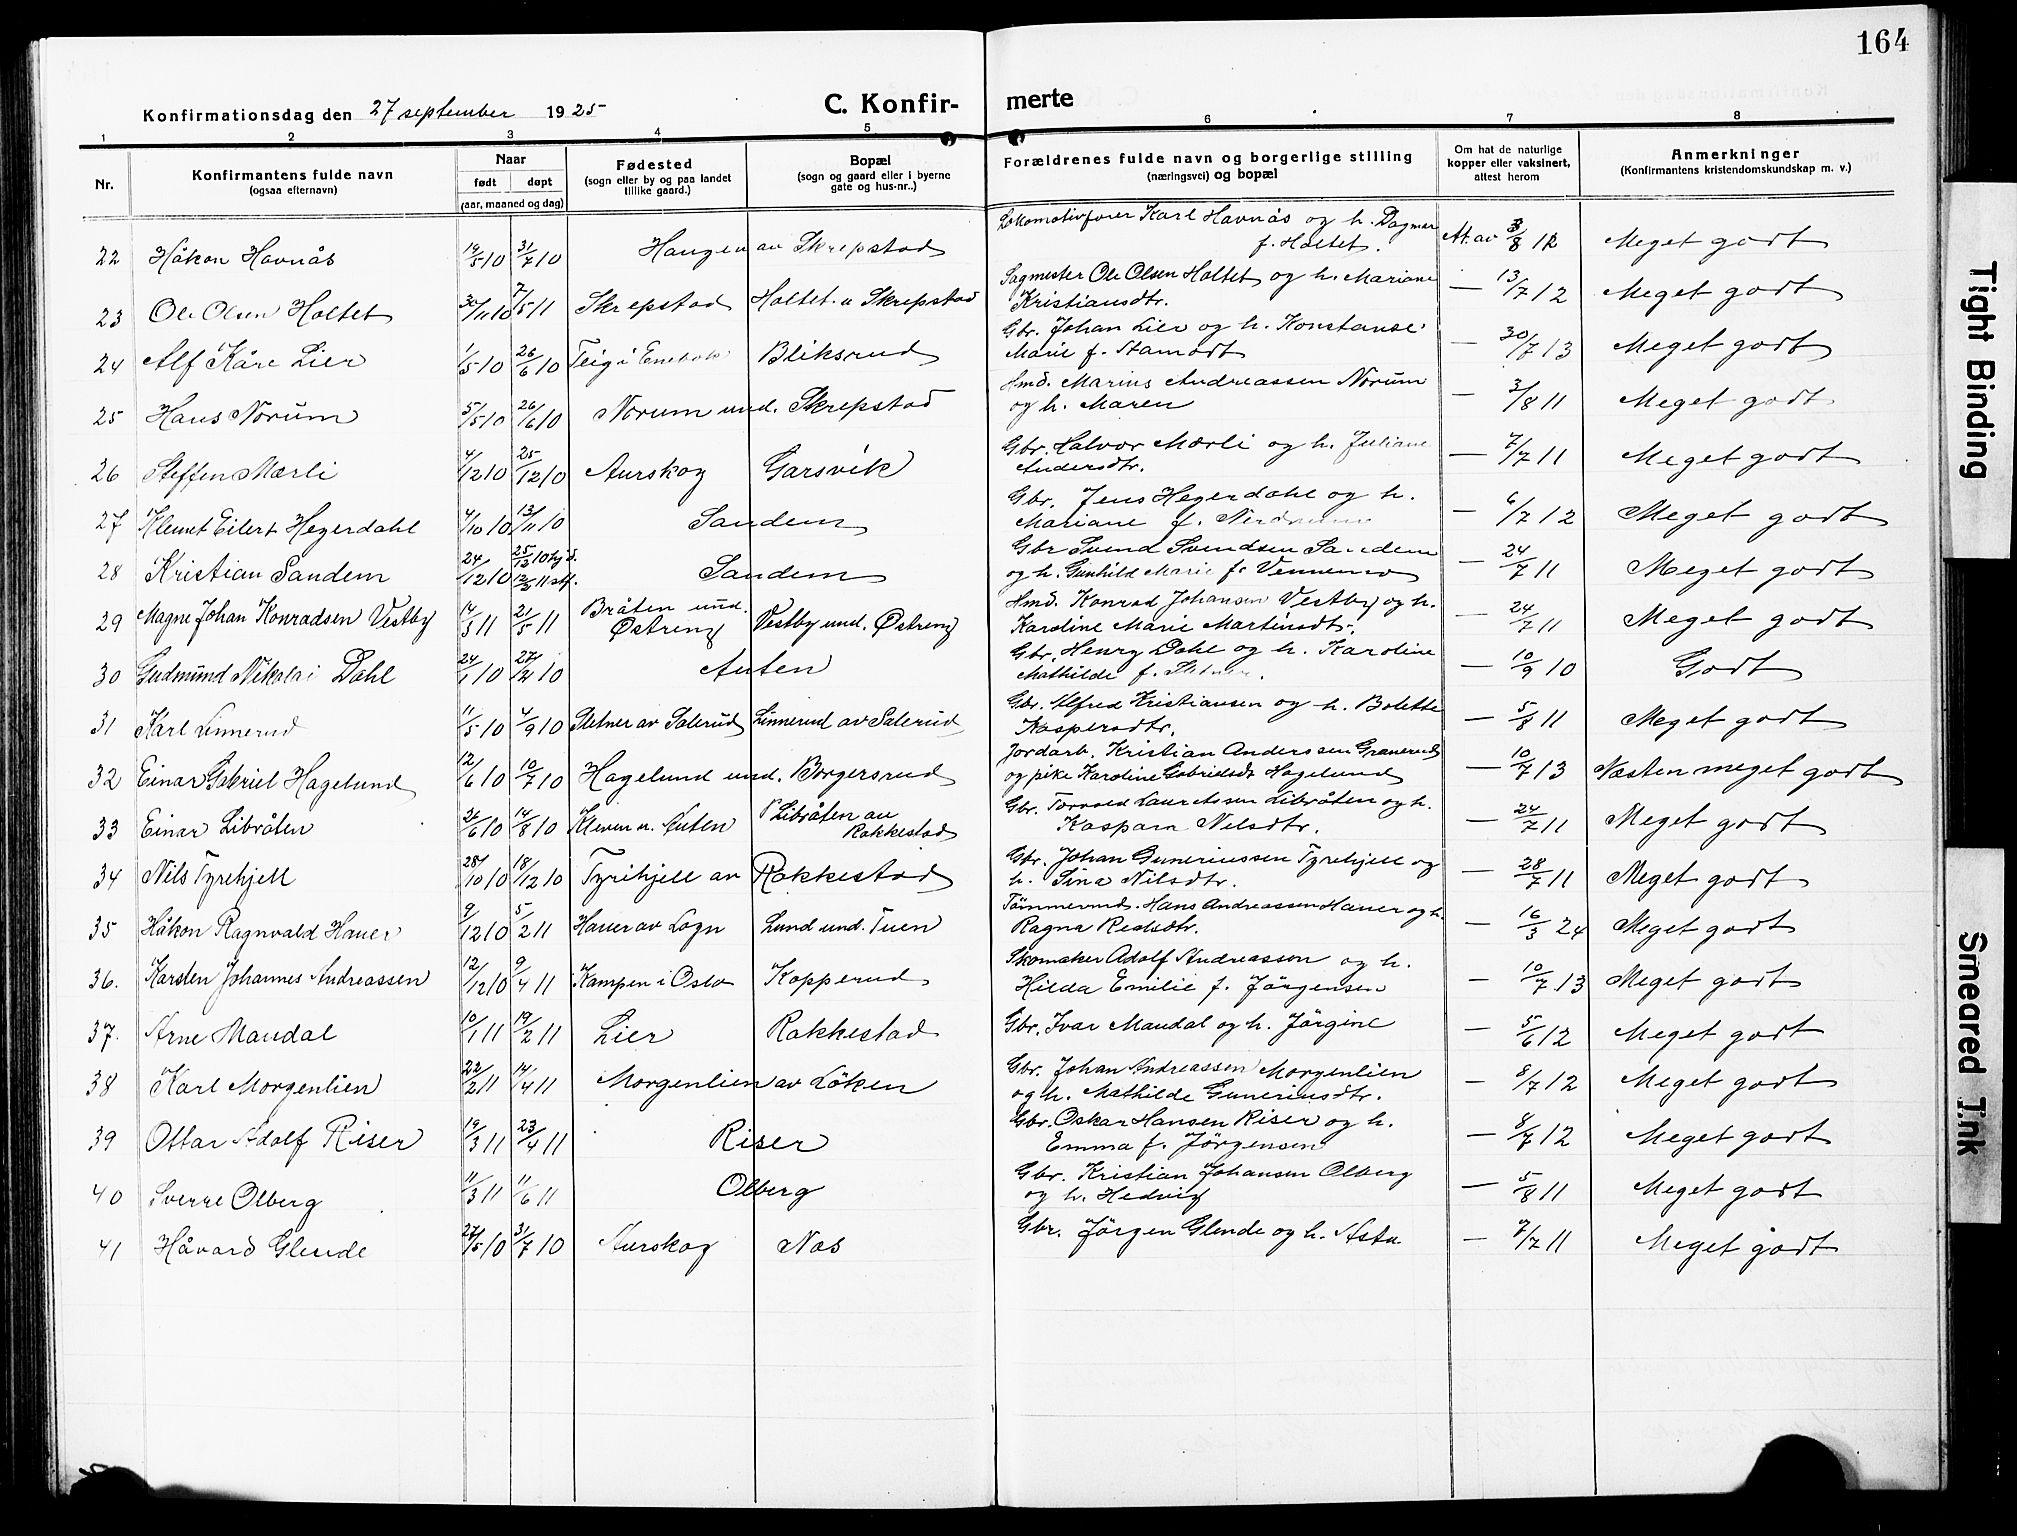 164
Konfirmationsdag den 27 september 1925
C. Konfir-
merte
1 2 3 4 5 6 7 8
Nr.
Konfirmantens fulde navn
(ogsaa efternavn)
Naar
født døpt
(aar, maaned og dag)
Fødested
(sogn eller by og paa landet
tillike gaard.)
Bopæl
(sogn og gaard eller i byerne
gate og hus-nr..)
Forældrenes fulde navn og borgerlige stilling
(næringsvei) og bopæl
Om hat de naturlige
kopper eller vaksinert,
attest herom
Anmerkninger
(Konfirmantens kristendomskundskap m. v.)
22 Håkon Havnås 19/5 10 31/7 10 Haugen av Skrepstad Lokomotivfører Karl Havnås og h. Dagmar
f. Holtet. At. av 3/8 12 Meget godt
23 Ole Olsen Holtet 30/11 10 7/5 11 Skrepstad Holtet u Skrepstad Sagmester Ole Olsen Holtet og h. Mariane
Kristiansdtr. — 13/7 12 Meget godt
24 Alf Kåre Lier 1/5 10 26/6 10 Teig i Enebak Bliksrud Gbr. Johan Lier og h. Konstanse
Marie f. Stamodt — 30/7 13 Meget godt
25 Hans Norum 5/5 10 26/6 10 Norum und. Skrepstad Hmd. Marius Andreassen Norum
og h. Maren — 3/8 11 Meget godt
26 Steffen Mærli 4/12 10 25/12 10 Aurskog Garsvik Gbr. Halvor Mærli og h. Juliane
Andersdtr. — 7/7 11 Meget godt
27 Klemet Eilert Hegerdahl 4/10 10 13/11 10 Sandem Gbr. Jens Hegerdahl og h.
Mariane f. Nerdrum — 6/7 12 Meget godt
28 Kristian Sandem 24/12 10 25/12 10 hjd. 12/2 11 stf. Sandem Gbr Svend Svendsen Sandem
og h. Gunhild Marie f. Vennemo — 24/7 11 Meget godt
29 Magne Johan Konradsen Vestby 14/3 11 21/5 11 Bråten und.
Østreng Vestby und. Østreng Hmd. Konrad Johansen Vestby og h.
Karoline Marie Martinsdtr. — 24/7 11 Meget godt
30 Gudmund Nikolai Dahl 24/1 10 27/2 10 Auten Gbr. Henry Dahl og h. Karoline
Mathilde f. — 10/9 10 Godt
31 Karl Linnerud 11/5 10 4/9 10 Stetner av Salerud Linnerud av Salerud Gbr. Alfred Kristiansen og h. Bolette
Kaspersdtr. — 5/8 11 Meget godt
32 Einar Gabriel Hagelund 12/6 10 10/7 10 Hagelund und. Borgersrud Jordarb. Kristian Anderssen Granerud
og pike Karoline Gabrielsdt Hagelund — 10/7 13 Næsten meget godt
33 Einar Libråten 26/6 10 14/8 10 Kleven u. Auten Libråten av
Rakkestad Gbr. Torvald Lauretssen Libråten og h.
Kaspara Nilsdtr. — 24/7 11 Meget godt
34 Nils Tyrehjell 28/10 10 18/12 10 Tyrihjell av Rakkestad Gbr. Johan Guneriussen Tyrehjell og
h. Lina Nilsdtr. — 28/7 11 Meget godt
35 Håkon Ragnvald Hauer 9/12 10 5/2 11 Hauer av Løgn Lund und. Tuen Tömmermd. Hans Andreassen Hauer og h.
Ragna — 16/3 24 Meget godt
36. Karsten Johannes Andreassen 12/12 10 9/4 11 Kampen i Oslo Kopperud Skomaker Adolf Andreassen og h.
Hilda Emilie f. Jörgensen — 10/7 13 Meget godt
37. Arne Mandal 10/1 11 19/2 11 Lier Rakkestad Gbr. Ivar Mandal og h. Jörgine — 5/6 12 Meget godt
38 Karl Morgenlien 22/2 11 14/4 11 Morgenlien av Löken Gbr. Johan Andreassen Morgenlien
og h. Mathilde Guneriusdtr. — 8/7 12 Meget godt
39 Ottar Adolf Riser 19/3 11 23/4 11 Riser Gbr. Oskar Hansen Riser og h.
Emma f. Jörgensen — 8/7 12 Meget godt
40 Sverre Olberg 11/3 11 11/6 11 Olberg Gbr. Kristian Johansen Olberg
og h. Hedvig — 5/8 11 Meget godt
41 Håvard Glende 27/5 10 31/7 10 Aurskog Nas Gbr. Jörgen Glende og h. Asta — 7/7 11 Meget godt
Tight Binding
Smeared Ink